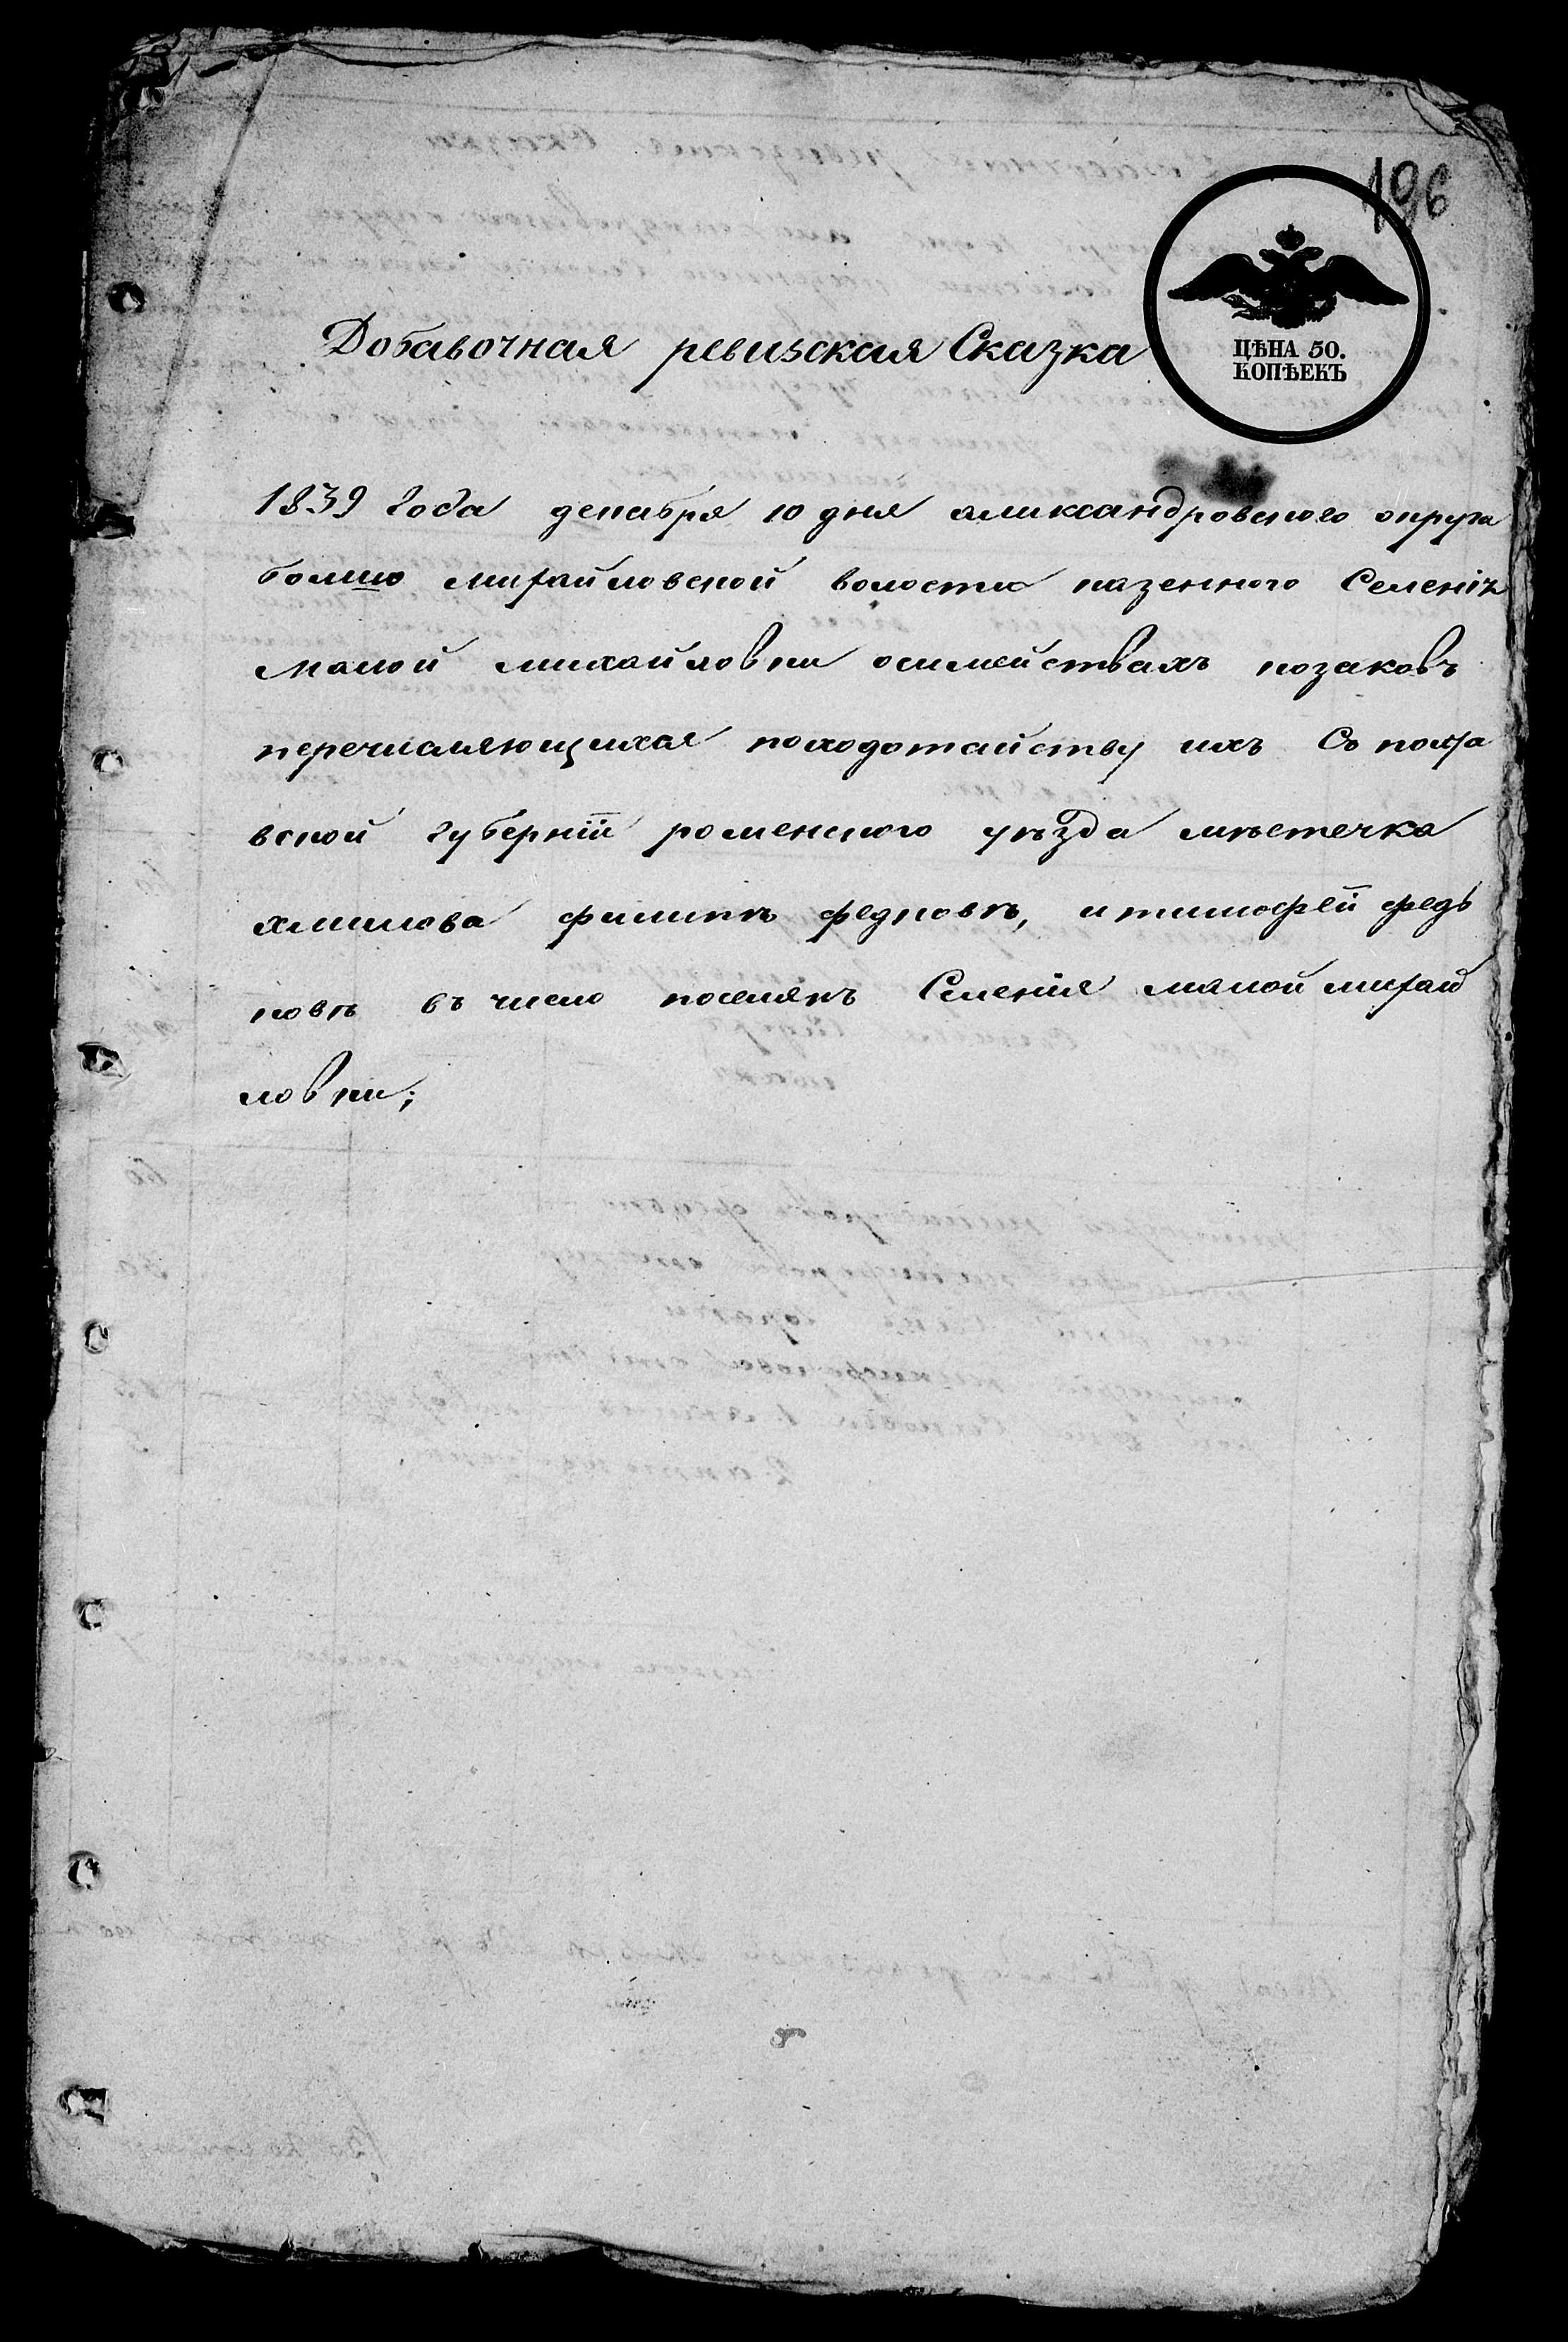 196
ЦѢНА 50.
КОПѢЕКЪ
Добавочная ревизская Сказка
1839 Года декабря 10 дня аликсандровского округа
болшо михайловской волости казенного Селенія
малой михайловки осимействахъ козаковъ
перечисляющихся походотайству ихъ Со полта
вской Губерніи роменского уѣзда мѣстечка
хмилова филипъ федковъ, и тимофей федь
ковъ въ число поселянъ Селенія малой михай
ловки;